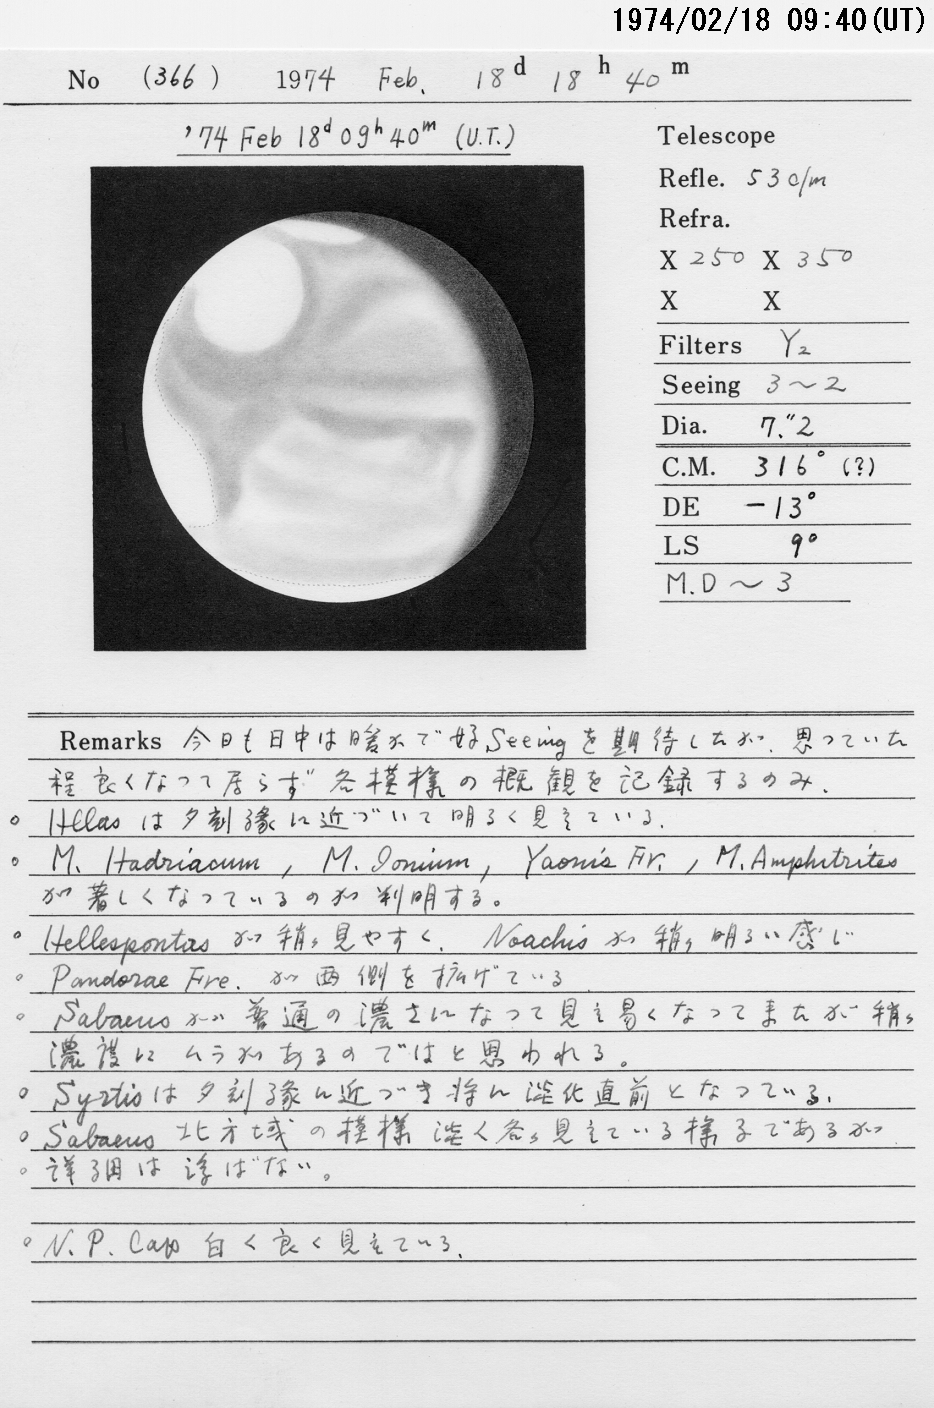 1974/02/18 09:40(UT)
No (366) 1974 Feb. 18d 18h 40m
'74 Feb 18d 09h 40m (U.T.)
Telescope
Refle. 53 c/m
Refra.
X 250 X 350
X X
Filters Y2
Seeing 3~2
Dia. 7."2
C.M. 316° (?)
DE -13°
LS 9°
M.D ~ 3
Remarks 今日も日中は暖かで好Seeingを期待したが、思っていた
程良くなって居らず各模様の概観を記録するのみ.
○ Hellas は夕刻縁に近づいて明るく見えている.
○ M. Hadriacum, M. Ionium, Yaonis Fr., M. Amphitrites
が著しくなっているのが判明する。
○ Hellespontus が稍々見やすく、Noachis が稍々明るい感じ
○ Pandorae Fre. が西側を拡げている
○ Sabaeus が普通の濃さになって見え易くなってきたが稍々
濃度にムラがあるのではと思われる。
○ Syrtis は夕刻縁に近づき将に淡化直前となっている.
○ Sabaeus 北方域の模様淡く各々見えている様子であるが
○ 詳細は浮ばない。
○ N. P. Cap 白く良く見えている.